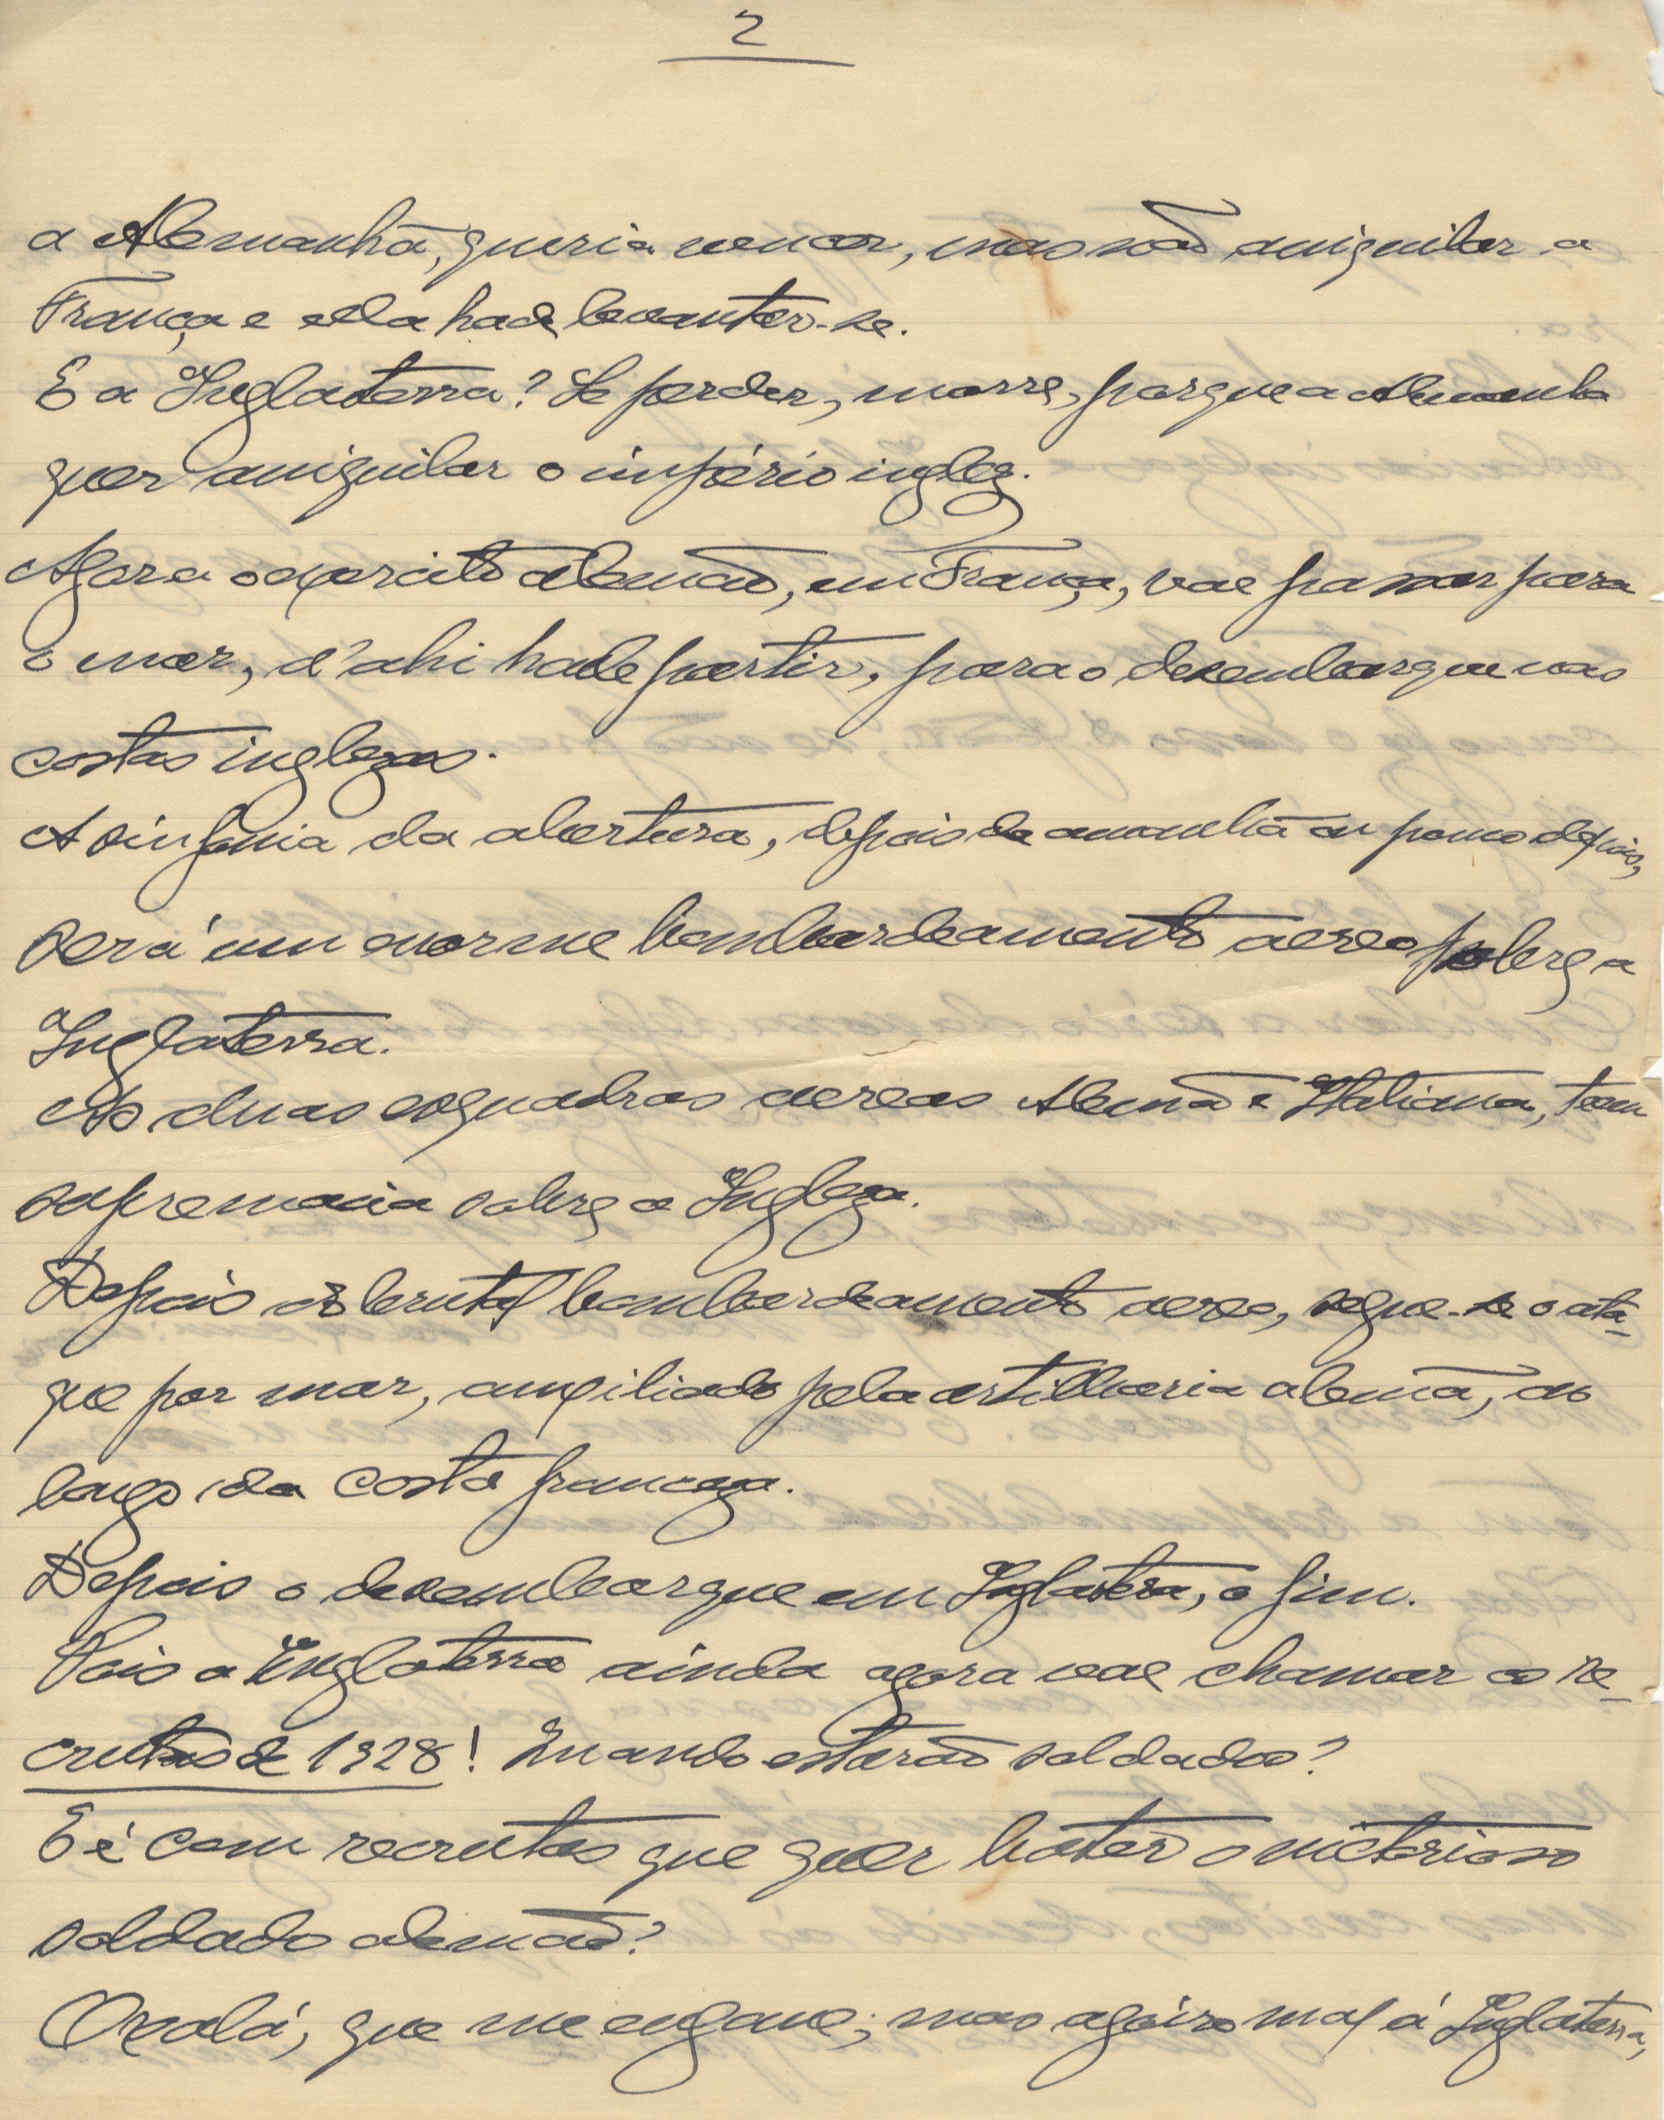 2
a Alemanhã, queria vencer, mas não aniquilar a
França e ella hade levantar-se.
E a Inglaterra? Se perder, morre, porque a Alemanha
quer aniquilar o império inglez.
Agora o exercito alemão, em França, vae passar para
o mar, d'ahi hade partir, para o desembarque nas
costas inglezas.
A sinfonia da abertura, depois de amanhã ou pouco depois,
será um enorme bombardeamento aereo sobre a
Inglaterra.
As duas esquadras aereas Alemã e Italiana, teem
supremacia sobre a Ingleza.
Depois o brutal bombardeamento aereo, segue-se o ata-
que por mar, auxiliado pela artilharia alemã, ao
longo da costa franceza.
Depois o desembarque em Inglaterra, o fim.
Pois a Inglaterra ainda agora vae chamar os re-
crutas de 1928! Quando estarão soldados?
E é com recrutas que quer bater o victorioso
soldado alemão?
Oxalá, que me engane; mas agoiro mal á Inglaterra,